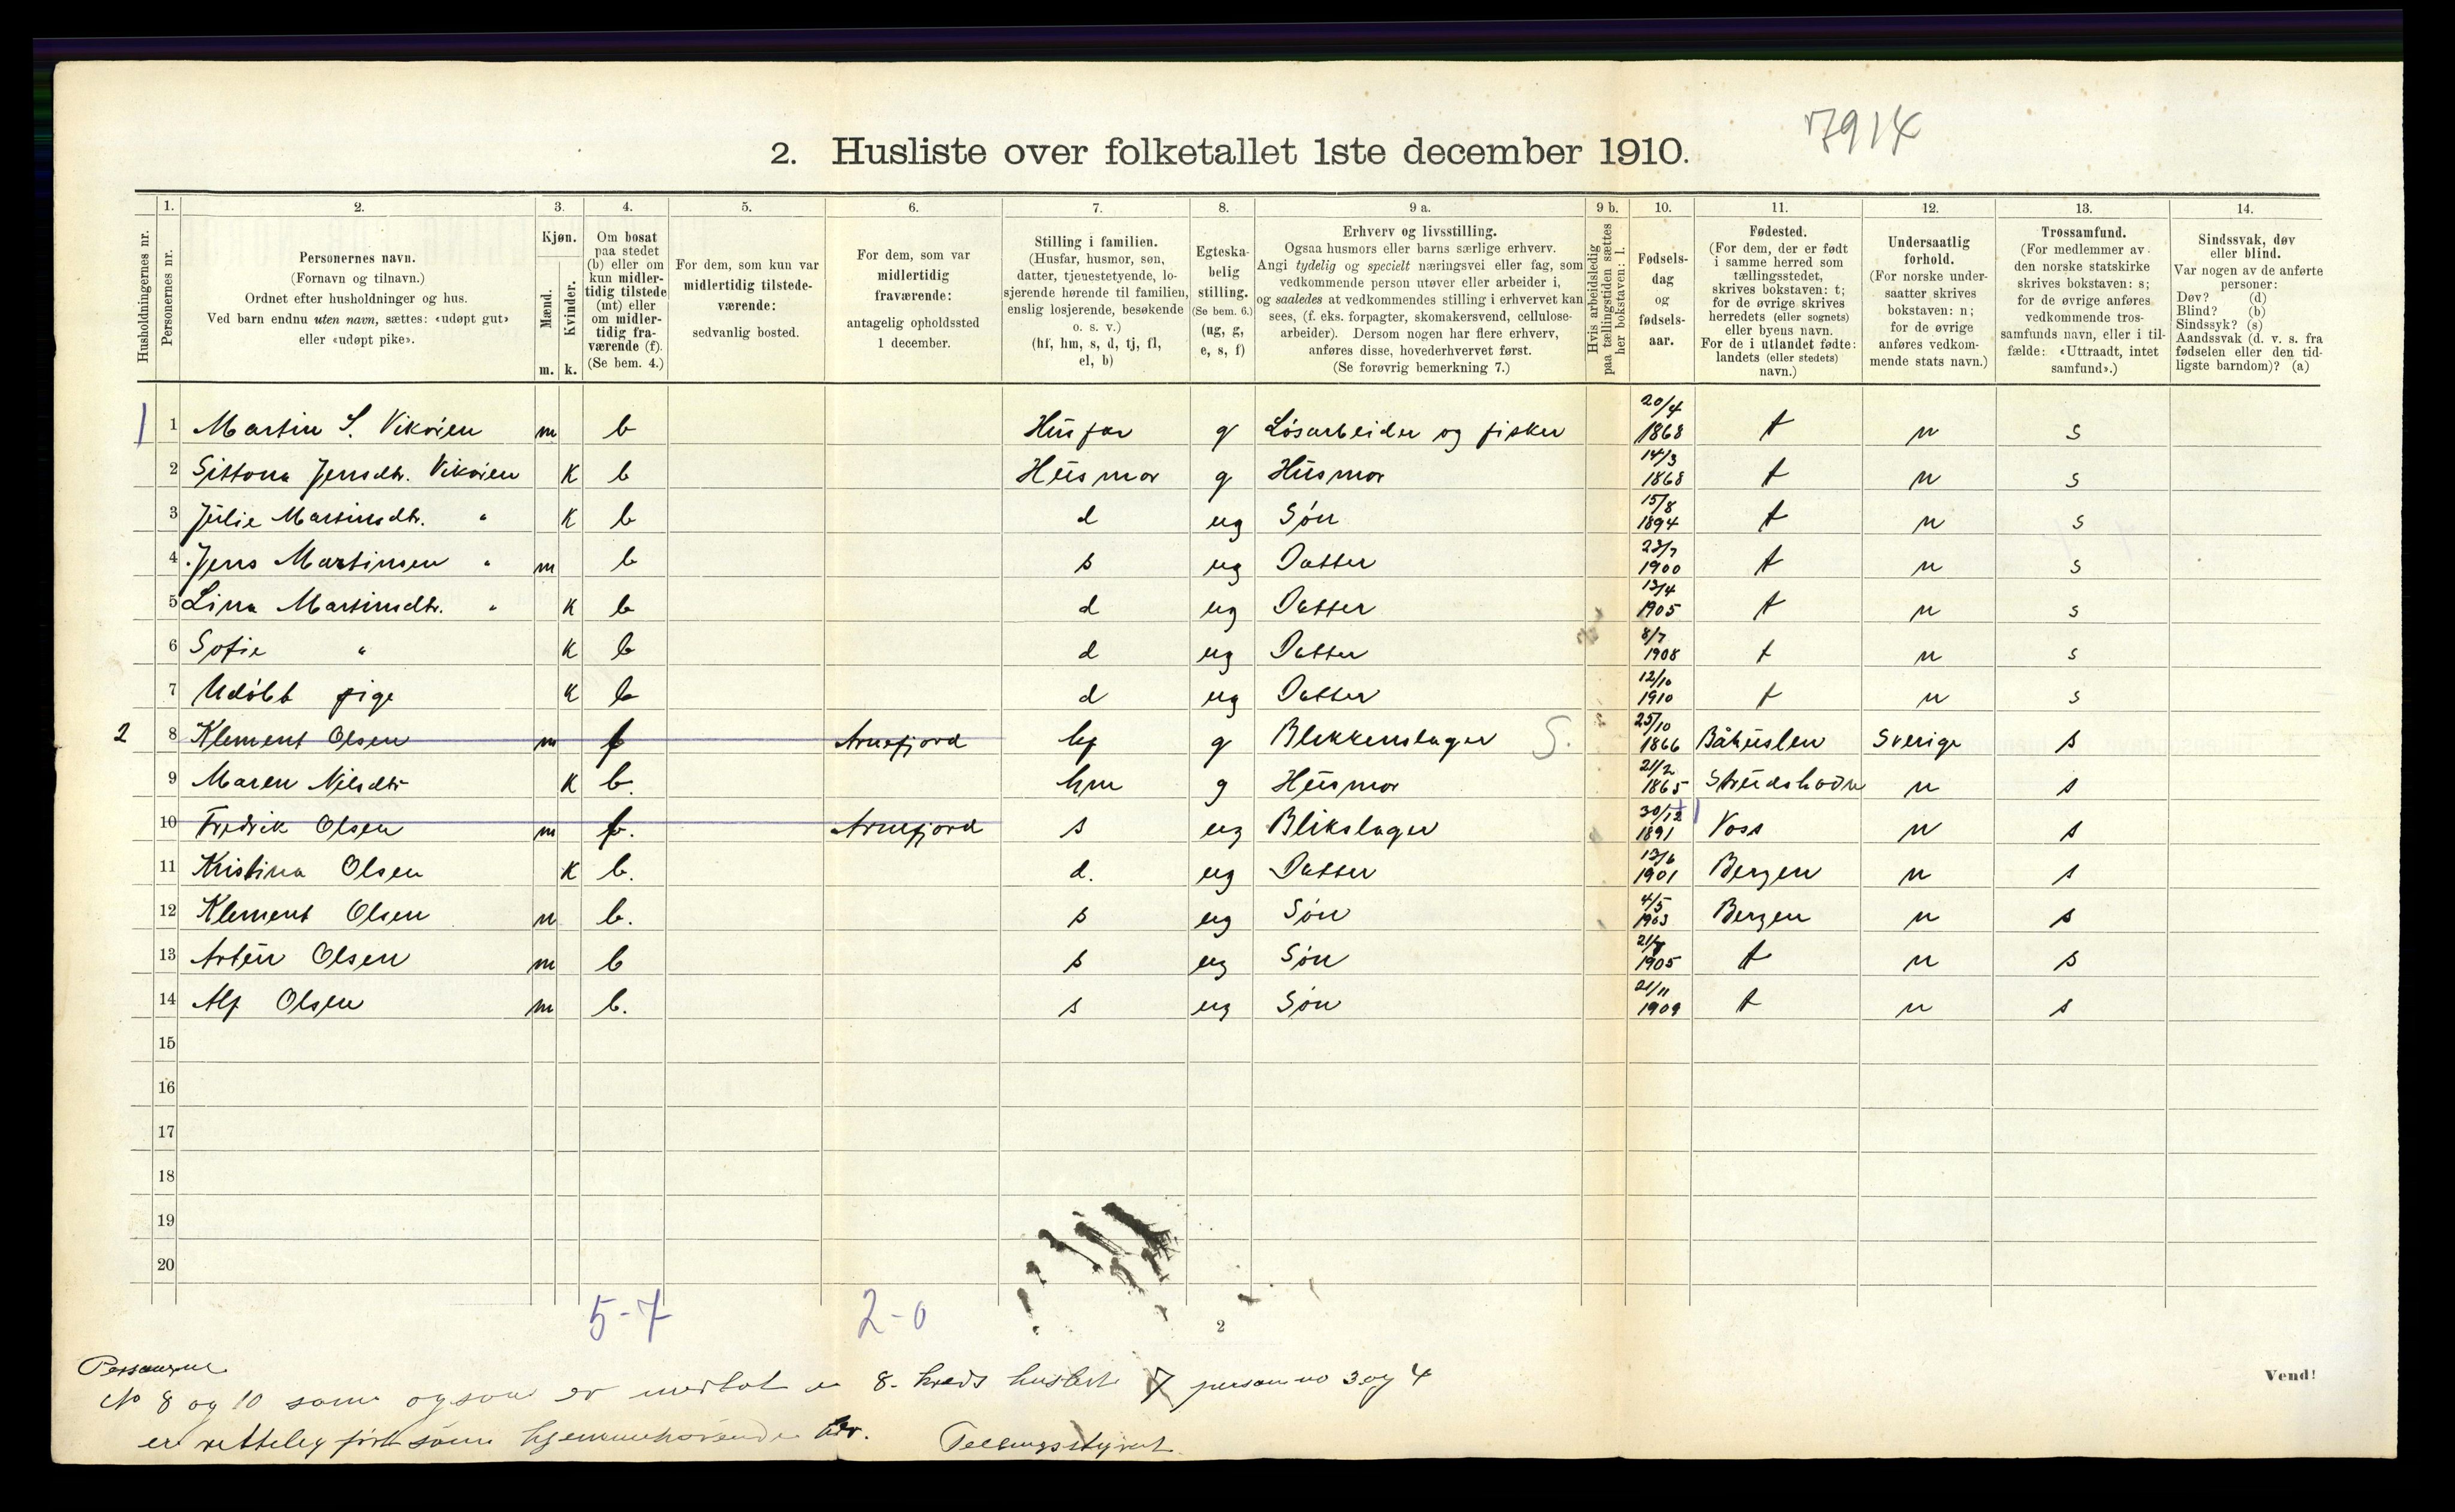 7914
2. Husliste over folketallet 1ste december 1910.
Husholdningernes nr.
1. Personernes nr.
2. Personernes navn.
(Fornavn og tilnavn.)
Ordnet efter husholdninger og hus.
Ved barn endnu uten navn, sættes: «udøpt gut»
eller «udøpt pike».
3. Kjøn.
Mænd. Kvinder.
m. k.
4. Om bosat
paa stedet
(b) eller om
kun midler-
tidig tilstede
(mt) eller
om midler-
tidig fra-
værende (f).
(Se bem. 4.)
5. For dem, som kun var
midlertidig tilstede-
værende:
sedvanlig bosted.
6. For dem, som var
midlertidig
fraværende:
antagelig opholdssted
1 december.
7. Stilling i familien.
(Husfar, husmor, søn,
datter, tjenestetyende, lo-
sjerende hørende til familien,
enslig losjerende, besøkende
o. s. v.)
(hf, hm, s, d, tj, fl,
el, b)
8. Egteska-
belig
stilling.
(Se bem. 6.)
(ug, g,
e, s, f)
9 a. Erhverv og livsstilling.
Ogsaa husmors eller barns særlige erhverv.
Angi tydelig og specielt næringsvei eller fag, som
vedkommende person utøver eller arbeider i,
og saaledes at vedkommendes stilling i erhvervet kan
sees, (f. eks. forpagter, skomakersvend, cellulose-
arbeider). Dersom nogen har flere erhverv,
anføres disse, hovederhvervet først.
(Se forøvrig bemerkning 7.)
9 b. Hvis arbeidsledig
paa tællingstiden sættes
her bokstaven: l.
10. Fødsels-
dag
og
fødsels-
aar.
11. Fødested.
(For dem, der er født
i samme herred som
tællingsstedet,
skrives bokstaven: t;
for de øvrige skrives
herredets (eller sognets)
eller byens navn.
For de i utlandet fødte:
landets (eller stedets)
navn.)
12. Undersaatlig
forhold.
(For norske under-
saatter skrives
bokstaven: n;
for de øvrige
anføres vedkom-
mende stats navn.)
13. Trossamfund.
(For medlemmer av
den norske statskirke
skrives bokstaven: s;
for de øvrige anføres
vedkommende tros-
samfunds navn, eller i til-
fælde: «Uttraadt, intet
samfund».)
14. Sindssvak, døv
eller blind.
Var nogen av de anførte
personer:
Døv? (d)
Blind? (b)
Sindssyk? (s)
Aandssvak (d. v. s. fra
fødselen eller den tid-
ligste barndom)? (a)
1 1 Martin S. Vikøien m b Husfar g Løsarbeider og fisker 20/4 1868 t n s
2 Jensdtr. Vikøien k b Husmor g Husmor 14/3 1868 t n s
3 Julie Martinsdtr. " k b d ug Søn 15/8 1894 t n s
4 Jens Martinsen " m b s ug Datter 23/7 1900 t n s
5 Lina Martinsdtr. " k b d ug Datter 13/4 1905 t n s
6 Sofie " k b d ug Datter 8/7 1908 t n s
7 Udøbt pige k b d ug Datter 12/10 1910 t n s
2 8 Klement Olsen m f Arnefjord hf g Blikkenslager S. 25/10 1866 Båhuslen Sverige s
9 Maren Nilsdtr k b. hm g Husmor 21/2 1865 n s
10 Fredrik Olsen m f. Arnefjord s ug Blikslager 30/12 1891 Voss n s
11 Kristina Olsen k b. d. ug Datter 13/6 1901 Bergen n s
12 Klement Olsen m b. s ug Søn 4/5 1903 Bergen n s
13 Artur Olsen m b s ug Søn 1905 t n s
14 Alf Olsen m b. s ug Søn 21/11 1909 t n s
15
16
17
18
19
20
5-7 2-0
2
Vend!
Personerne
No 8 og 10 som ogsaa er medtat 8. kreds husliste 7 person no 3 og 4
er rettelig ført som hjemmehørende her. Tellingsstyret